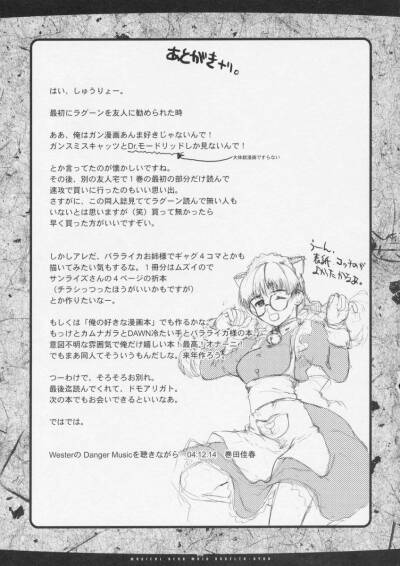 あとがきナリ。
はい、しゅうりょー。
最初にラグーンを友人に勧められた時
ああ、俺はガン漫画あんま好きじゃないんで！
ガンスミスキャッツとDr.モードリッドしか見ないんで！
大体銃漫画ですらない
とか言ってたのが懐かしいですね。
その後、別の友人宅で１巻の最初の部分だけ読んで
速攻で買いに行ったのもいい思い出。
さすがに、この同人誌見ててラグーン読んで無い人も
いないとは思いますが（笑）買って無かったら
早く買った方がいいですぞ。
しかしアレだ、バラライカお姉様でギャグ４コマとかも
描いてみたい気もするな。１冊分はムズイので
サンライズさんの４ページの折本
（チラシっつったほうがいいかもですが）
とか作りたいなー。
もしくは「俺の好きな漫画本」でも作るかな。
もっけとカムナガラとDAWN冷たい手とバラライカ様の本。
意図不明な雰囲気で俺だけ嬉しい本！最高！オナーニ！
でもまあ同人てそういうもんだしな。来年作ろう。
つーわけで、そろそろお別れ。
最後迄読んでくれて、ドモアリガト。
次の本でもお会いできるといいなあ。
ではでは。
Westerの Danger Musicを聴きながら　04.12.14　巻田佳春
うーん、
表紙 コッチのが
よかったかなぁ。